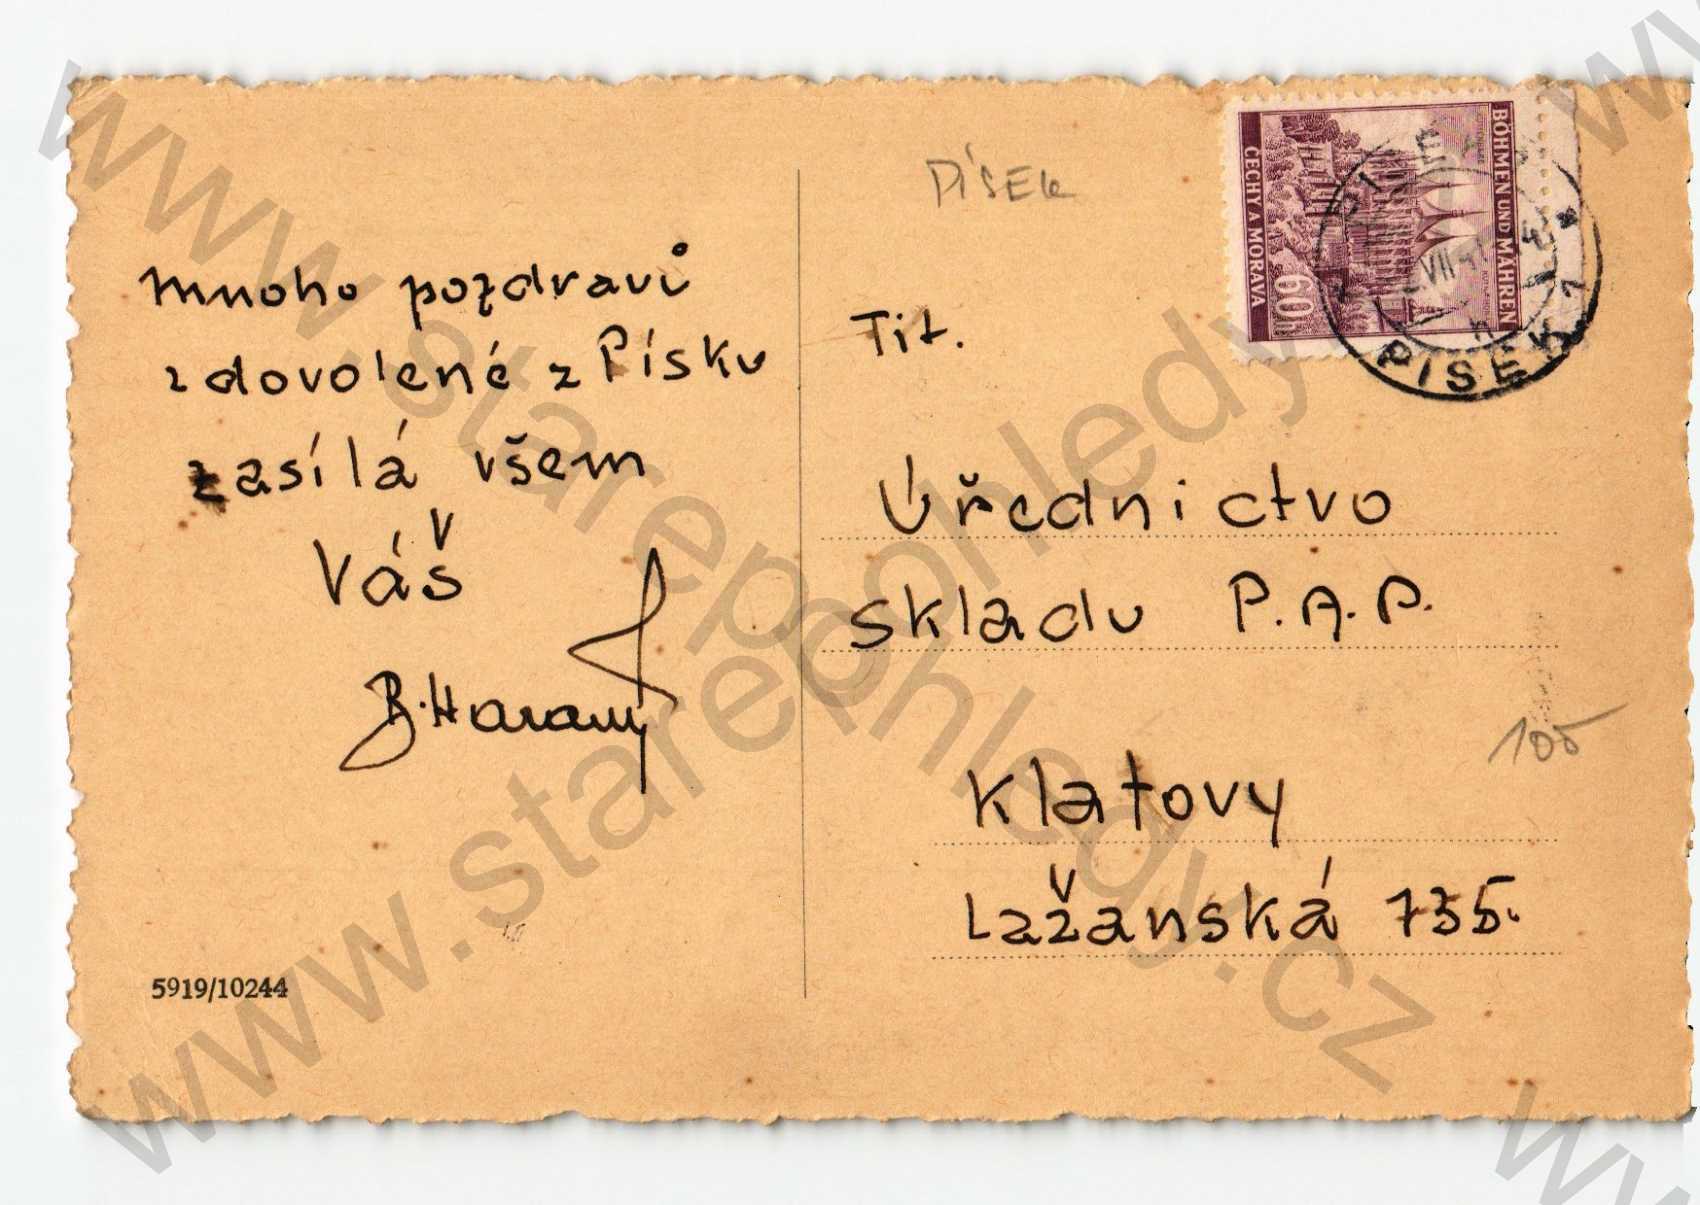 mnoho pozdravů
z dovolené z Písku
zasílá všem
Váš
B. Haraný
5919/10244
PÍSEK
BÖHMEN UND MÄHREN
ČECHY A MORAVA
60h
PÍSEK 1
Tit.
Úřednictvo
skladu P.A.P.
105
Klatovy
Lažanská 735.
www.starepohledy.cz
www.starepohledy.cz